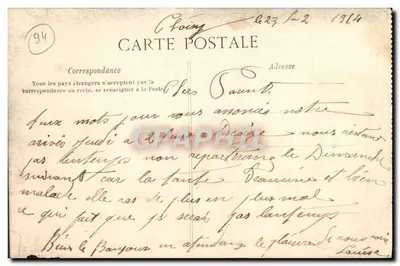 94
Choisy le 23 2 1914
CARTE POSTALE
Correspondance
Adresse
Tous les pays étrangers n'acceptent pas la
correspondance au recto, se renseigner à la Poste
Chers
deux mots pour vous anoncés notre
arivés jeudi a nous restont
pas lontemps non repartirons le Dimanche
suivant car la tante Francine et bien
malade elle vas de plus en plus mal
ce qui fait que je serai pas lontemps
le Bonjour en atendant le plaisir de vous voir
Louise